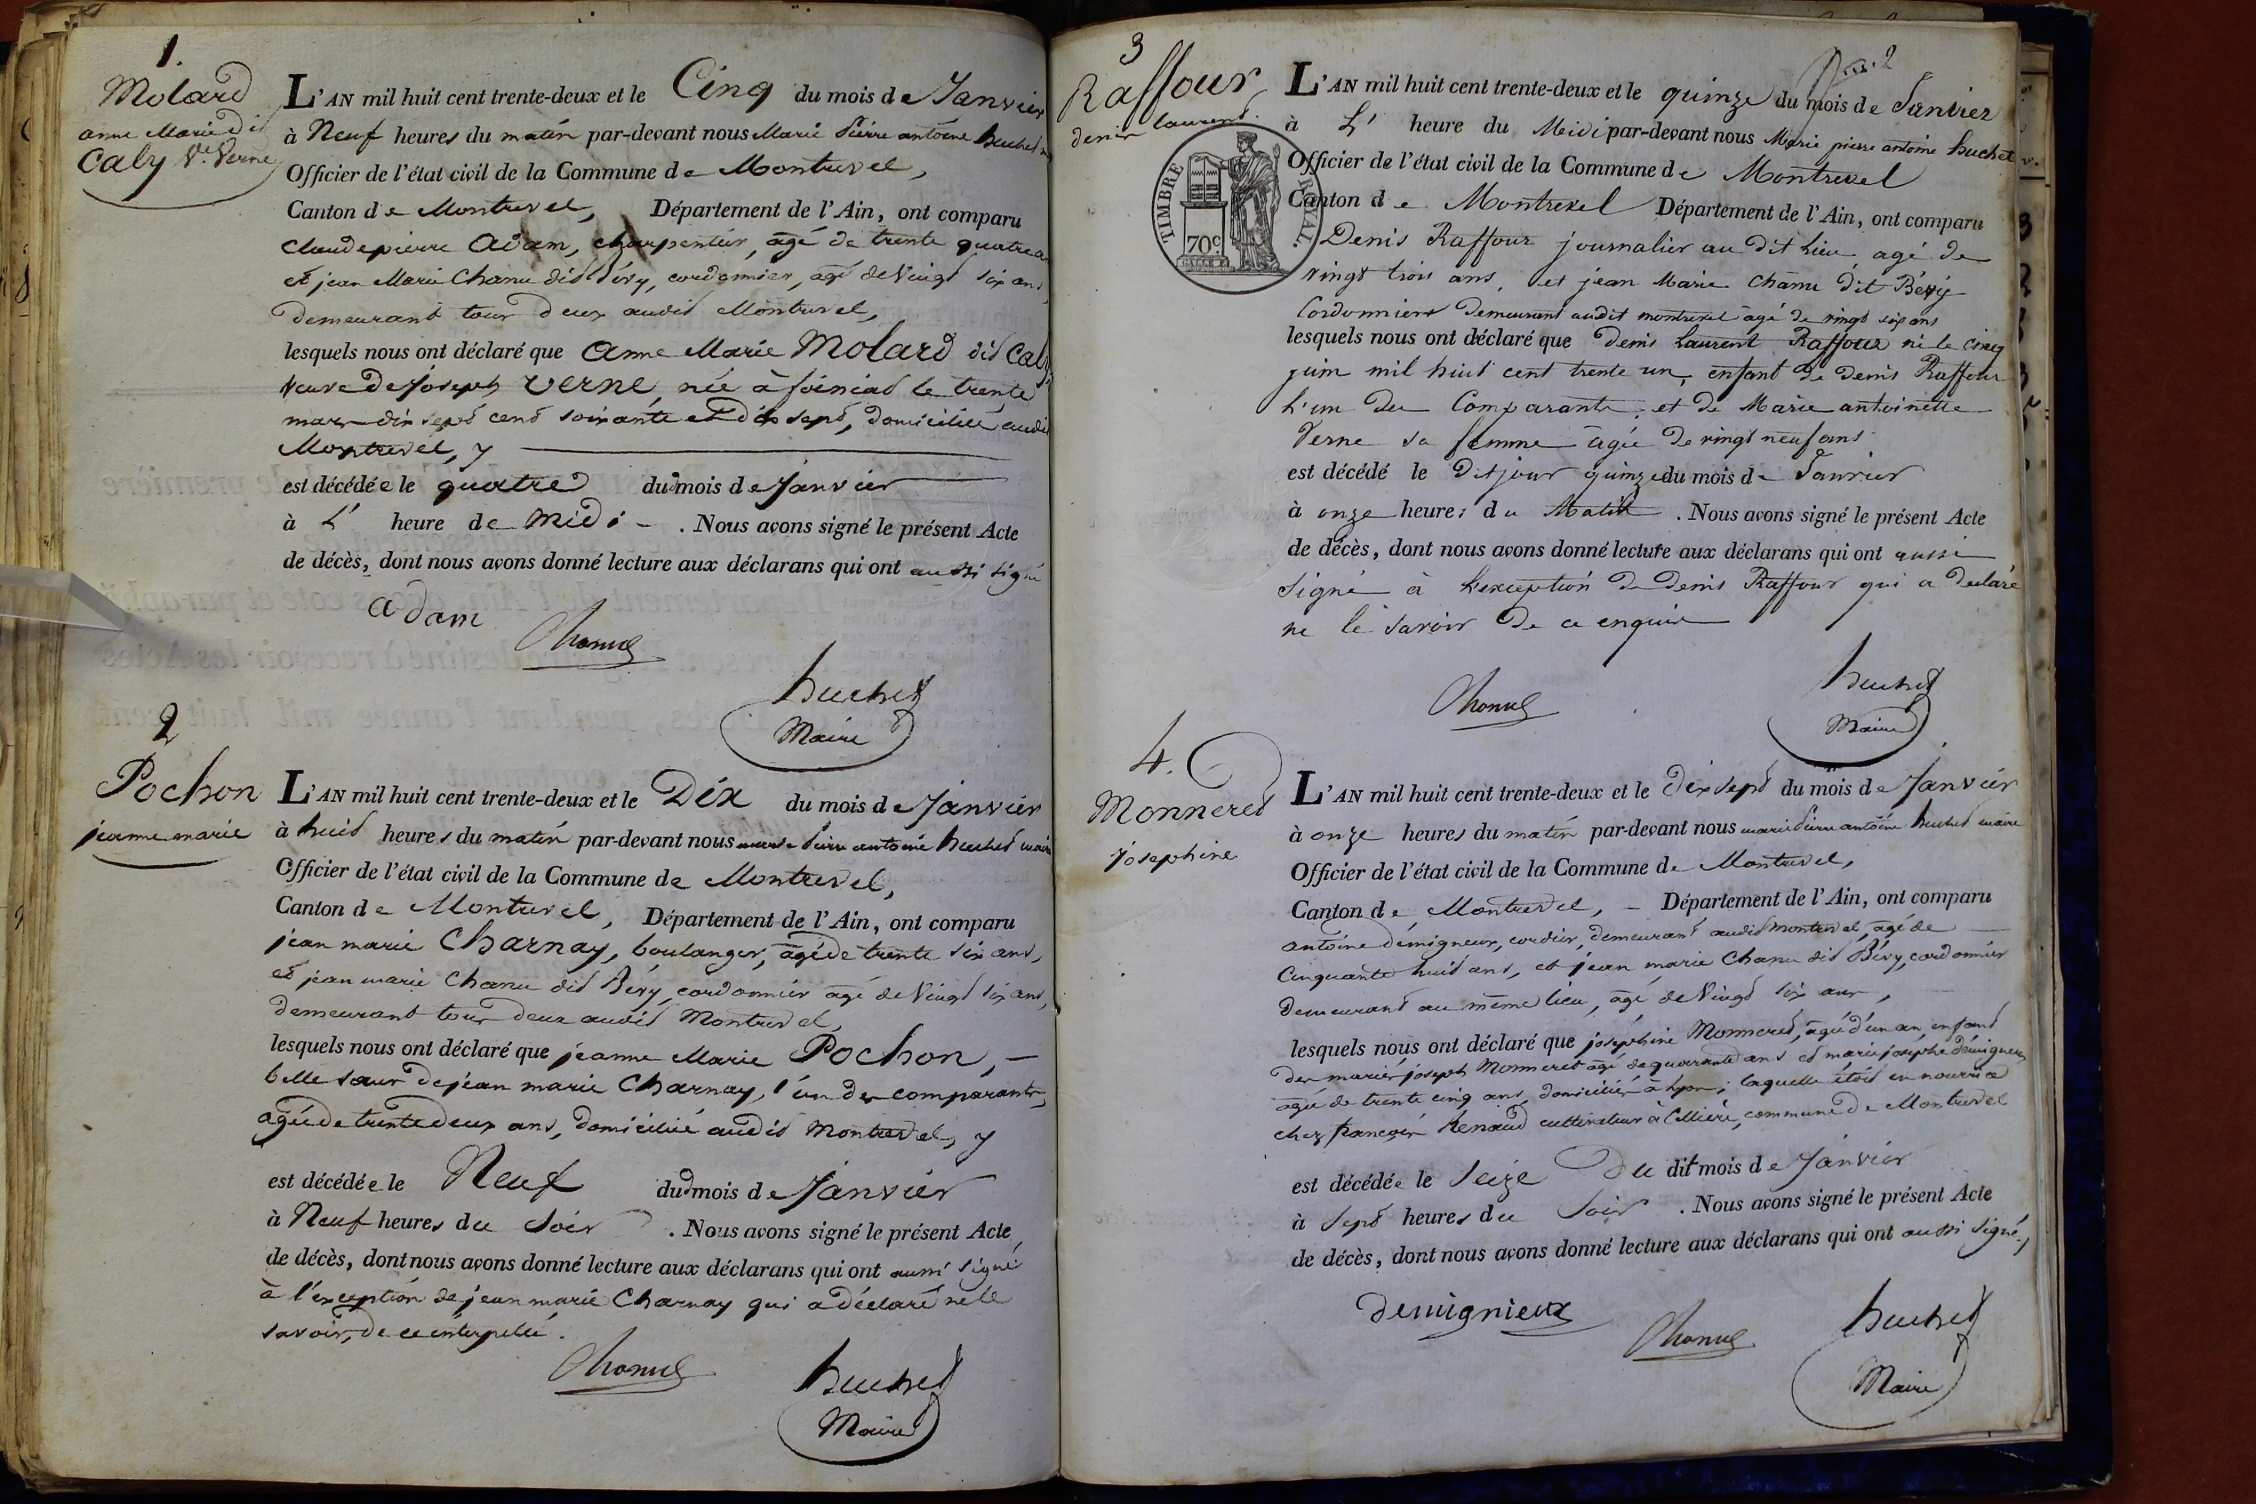 1.
Molard
anne Marie dit
Caly Ve. Verne
L'AN mil huit cent trente-deux et le Cinq du mois de Janvier
à Neuf heures du matin par-devant nous Marie Pierre antoine huchet
Officier de l'état civil de la Commune de Montrevel,
Canton de Montrevel, Département de l'Ain, ont comparu
Claude pierre Adam, charpentier, agé de trente quatre
et jean Marie Chanu dit Bévy, cordonnier, agé de Vingt six ans,
demeurant tous deux audit Montrevel,
lesquels nous ont déclaré que Anne Marie Molard dit Caly
veuve de Joseph Verne, née à foissiat le trente
mars dix sept cent soixante et dix sept, domiciliée audit
Montrevel, y
est décédée le quatre dud mois de Janvier
à L' heure de Midi - . Nous avons signé le présent Acte
de décès, dont nous avons donné lecture aux déclarans qui ont aussi signé
adam
Chanu
huchet
Maire
2
Pochon
jeanne marie
L'AN mil huit cent trente-deux et le Dix du mois de Janvier
à huit heures du matin par-devant nous marie Pierre antoine huchet maire
Officier de l'état civil de la Commune de Montrevel,
Canton de Montrevel, Département de l'Ain, ont comparu
jean marie Charnay, boulanger, agé de trente six ans,
et jean marie Chanu dit Bévy, cordonnier agé de Vingt six ans,
demeurant tous deux audit Montrevel,
lesquels nous ont déclaré que jeanne Marie Pochon, -
belle sœur de jean marie Charnay, l'un des comparants,
agée de trente deux ans, domiciliée audit Montrevel, y
est décédée le Neuf dud mois de Janvier
à Neuf heures du Soir . Nous avons signé le présent Acte
de décès, dont nous avons donné lecture aux déclarans qui ont aussi signé
à l'exception de jean marie Charnay qui a déclaré ne le
savoir, de ce interpellé.
Chanu
huchet
Maire
3
Raffour
denis laurent.
TIMBRE ROYAL.
70c
L'AN mil huit cent trente-deux et le quinze du mois de Janvier
à L' heure du Midi par-devant nous Marie pierre antoine huchet
Officier de l'état civil de la Commune de Montrevel
Canton de Montrevel Département de l'Ain, ont comparu
Denis Raffour journalier au dit Lieu agé de
vingt trois ans, et jean Marie Chanu dit Bévy
Cordonnier demeurant audit montrevel agé de vingt six ans
lesquels nous ont déclaré que Denis Laurent Raffour né le cinq
juin mil huit cent trente un, enfant de Denis Raffour
L'un des Comparants, et de Marie antoinette
Verne sa femme agée de vingt neuf ans
est décédé le Dit jour quinze du mois de Janvier
à onze heures du Matin . Nous avons signé le présent Acte
de décès, dont nous avons donné lecture aux déclarans qui ont aussi
Signé à L'exception de Denis Raffour qui a declaré
ne le savoir de ce enquis
Chanu
huchet
Maire
4.
Monneret
josephine
L'AN mil huit cent trente-deux et le Dix sept du mois de Janvier
à onze heures du matin par-devant nous marie Pierre antoine huchet maire
Officier de l'état civil de la Commune de Montrevel,
Canton de Montrevel, - Département de l'Ain, ont comparu
antoine démigneux, cordier, demeurant audit Montrevel, agé de
Cinquante huit ans, et jean marie Chanu dit Bévy, cordonnier
demeurant au même lieu, agé de Vingt six ans,
lesquels nous ont déclaré que joséphine Monneret, agée d'un an, enfant
des mariés joseph Monneret agé de quarante ans et marie josephe démigneux
agée de trente cinq ans, domiciliés à Lyon; laquelle étoit en nourrice
chez françois Renaud cultivateur à Cillière, commune de Montrevel
est décédée le Seize Du dit mois de Janvier
à Sept heures du Soir . Nous avons signé le présent Acte
de décès, dont nous avons donné lecture aux déclarans qui ont aussi signé,
demignieux
Chanu
huchet
Maire